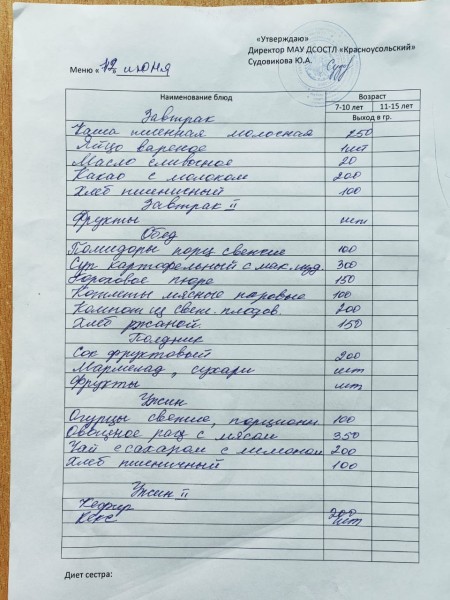 «Утверждаю»
Директор МАУ ДСОСТЛ «Красноусольский»
Судовикова Ю.А.
Меню « 12 » июня
Наименование блюд Возраст
7-10 лет 11-15 лет
Выход в гр.
Завтрак
Каша пшенная молочная 250
Яйцо вареное 1шт
Масло сливочное 20
Какао с молоком 200
Хлеб пшеничный 100
Завтрак II
Фрукты шт
Обед
Помидоры порц свежие 100
Суп картофельный с мак.изд. 300
Гороховое пюре 150
Котлеты мясные паровые 100
Компот из свеж. плодов. 200
Хлеб ржаной. 150
Полдник
Сок фруктовый 200
Мармелад, сухари шт
Фрукты шт
Ужин
Огурцы свежие, порцион 100
Овощное раг с мясом 350
Чай с сахаром с лимоном 200
Хлеб пшеничный 100
Ужин II
Кефир 200
Кекс шт
Диет сестра: